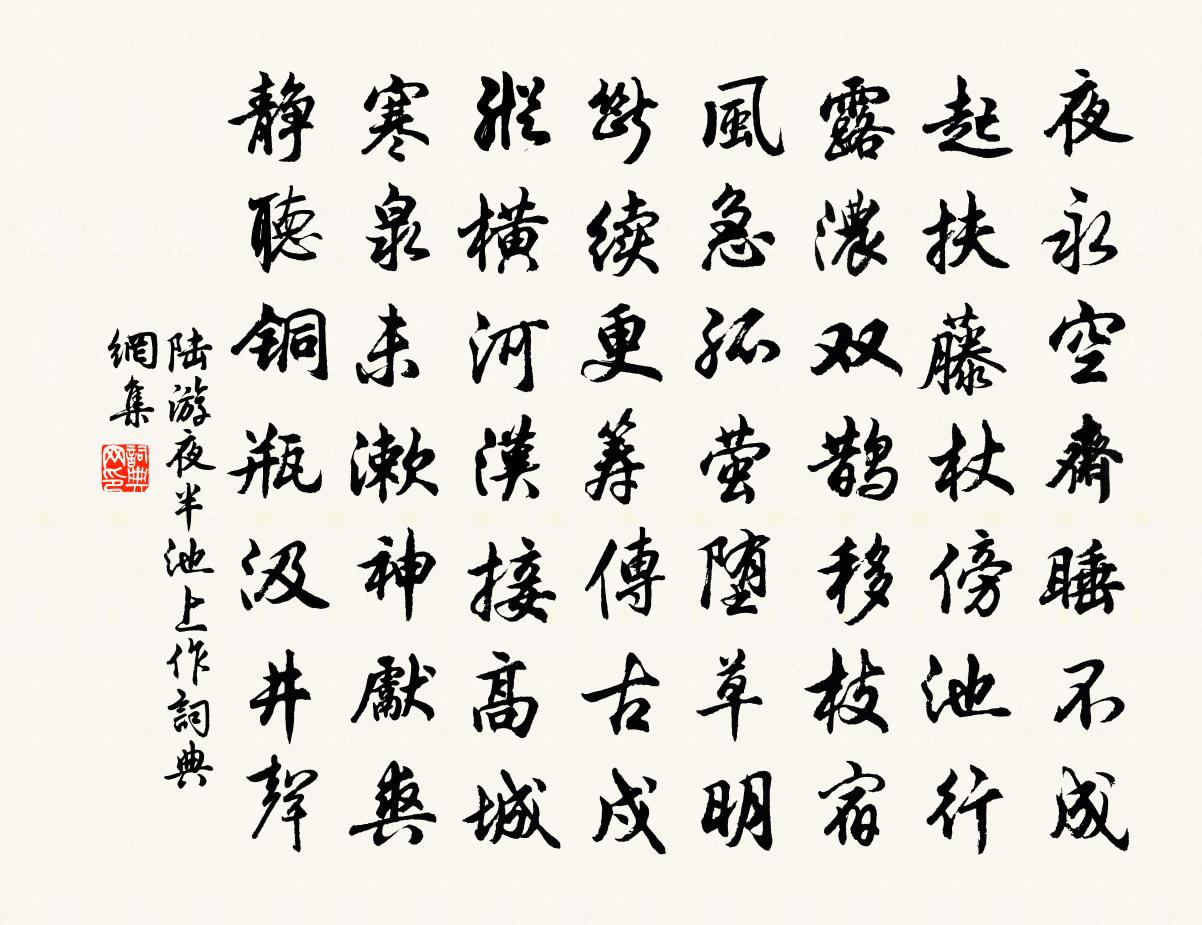 夜永空齋睡不成
起扶藤杖傍池行
露濃双鹊移枝宿
風急孤萤堕草明
斷续更筹傳古戍
縱橫河漢接高城
寒泉未漱神獻爽
静聽铜瓶汲井聲
陆游夜半池上作詞典
網集
詞典
网印